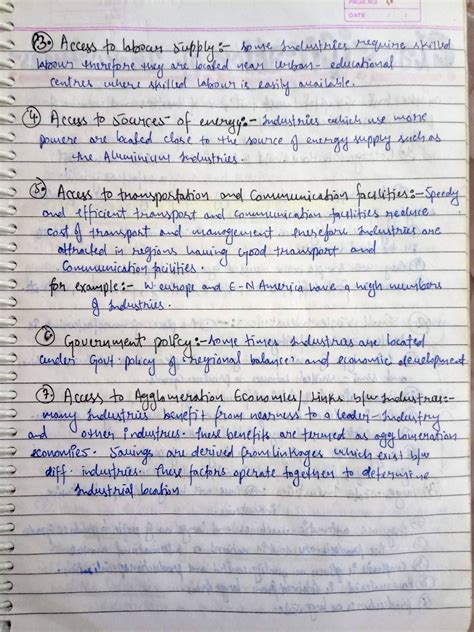 PAGE NO.
DATE
3. Access to labour supply:- Some industries require skilled
labour therefore they are located near urban- educational
centres where skilled labour is easily available.
4 Access to Sources of energy:- Industries which use more
powere are located close to the source of energy supply such as
the Aluminium industries.
5. Access to transportation and Communication facilities:- Speedy
and efficient transport and communication facilities reduce
cost of transport and management. therefore industries are
attracted in regions having good transport and
Communication facilities.
for example:- W europe and E-N America have a high numbers
of industries.
6 Government policy:- Some times industries are located
under Govt. policy of 'regional balance' and economic development
7. Access to Agglomeration Economies/ links b/w Industries:-
many industries benefit from nearness to a leader-industry
and other industries. These benefits are termed as agglomeration
economies. Savings are derived from linkages which exist b/w
diff. industries. These factors operate together to determine
industrial location